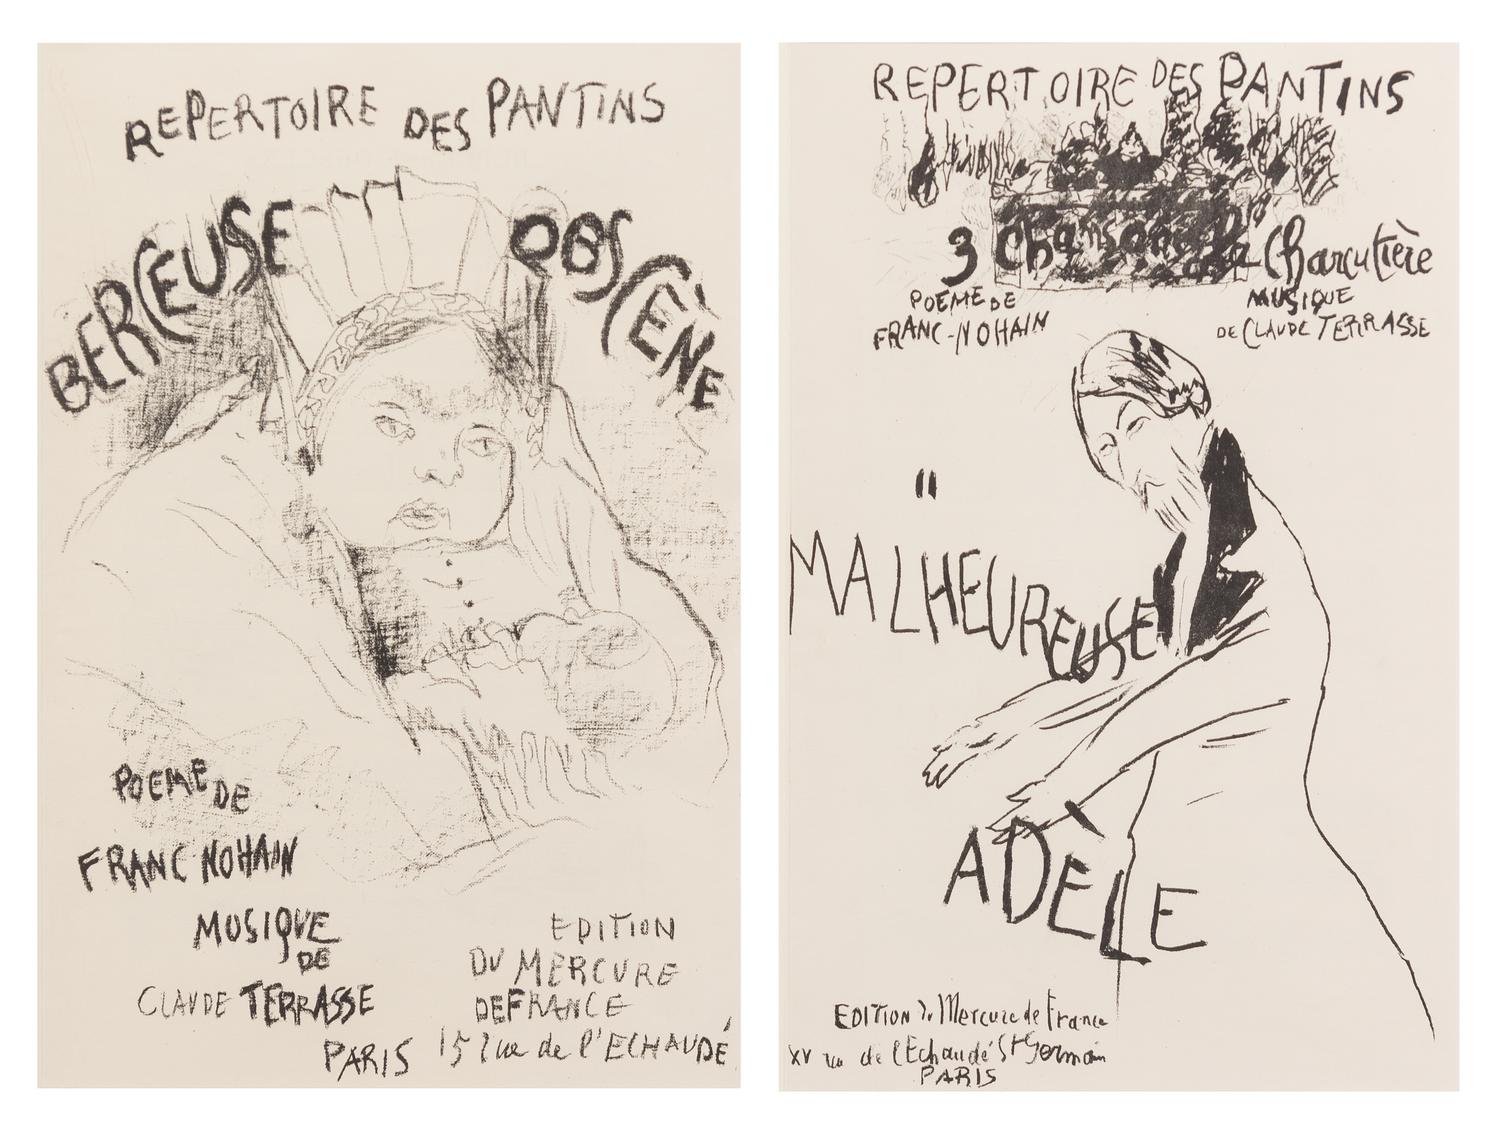 REPERTOIRE DES PANTINS
BERCEUSE OBSCÈNE
POEME DE
FRANC-NOHAIN
MUSIQUE
DE
CLAUDE TERRASSE
EDITION
DU MERCURE
DE FRANCE
PARIS 15 rue de l'ECHAUDÉ
REPERTOIRE DES PANTINS
3 Chansons de la Charcutière
POEME DE
FRANC-NOHAIN
MUSIQUE
DE CLAUDE TERRASSE
"
MALHEUREUSE
ADÈLE
EDITION du Mercure de France
XV rue de l'Echaudé St Germain
PARIS